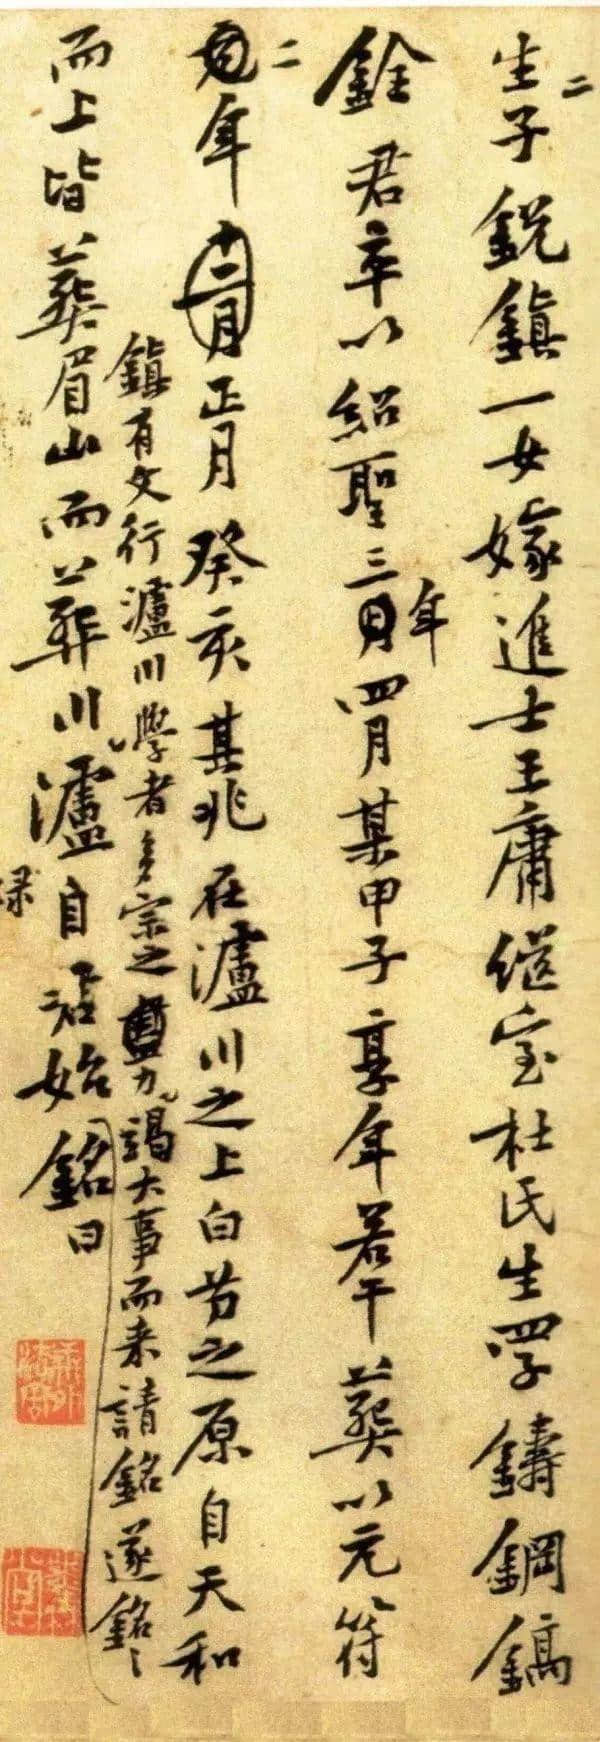 生二子銳鎮一女嫁進士王庸繼室杜氏生四子鑄鋼鎬
銓君卒以紹聖三年四月某甲子享年若干葬以元符
二年十二月正月癸亥其兆在瀘川之上白芀之原自天和
鎮有文行瀘川學者多宗之力竭大事而來請銘遂銘之
而上皆葬眉山而葬瀘川自君始銘曰